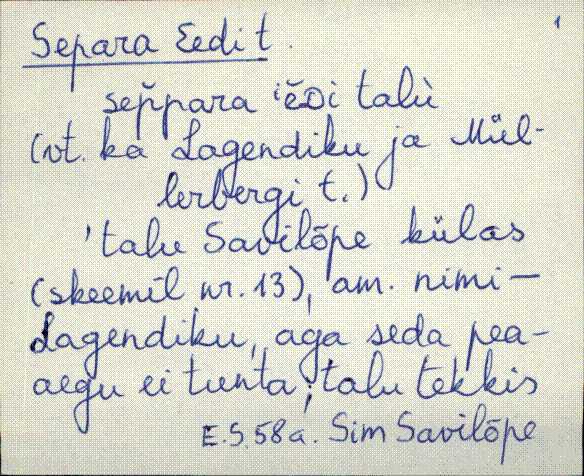 Separa Eedi t. 1
sep̆para 'ĕᴅi talù
(vt. ka Lagendiku ja Mül-
lerbergi t.)
'talu Savilõpe külas
(skeemil nr. 13), am. nimi –
Lagendiku, aga seda pea-
aegu ei tunta; talu tekkis
E.S. 58 a. Sim Savilõpe